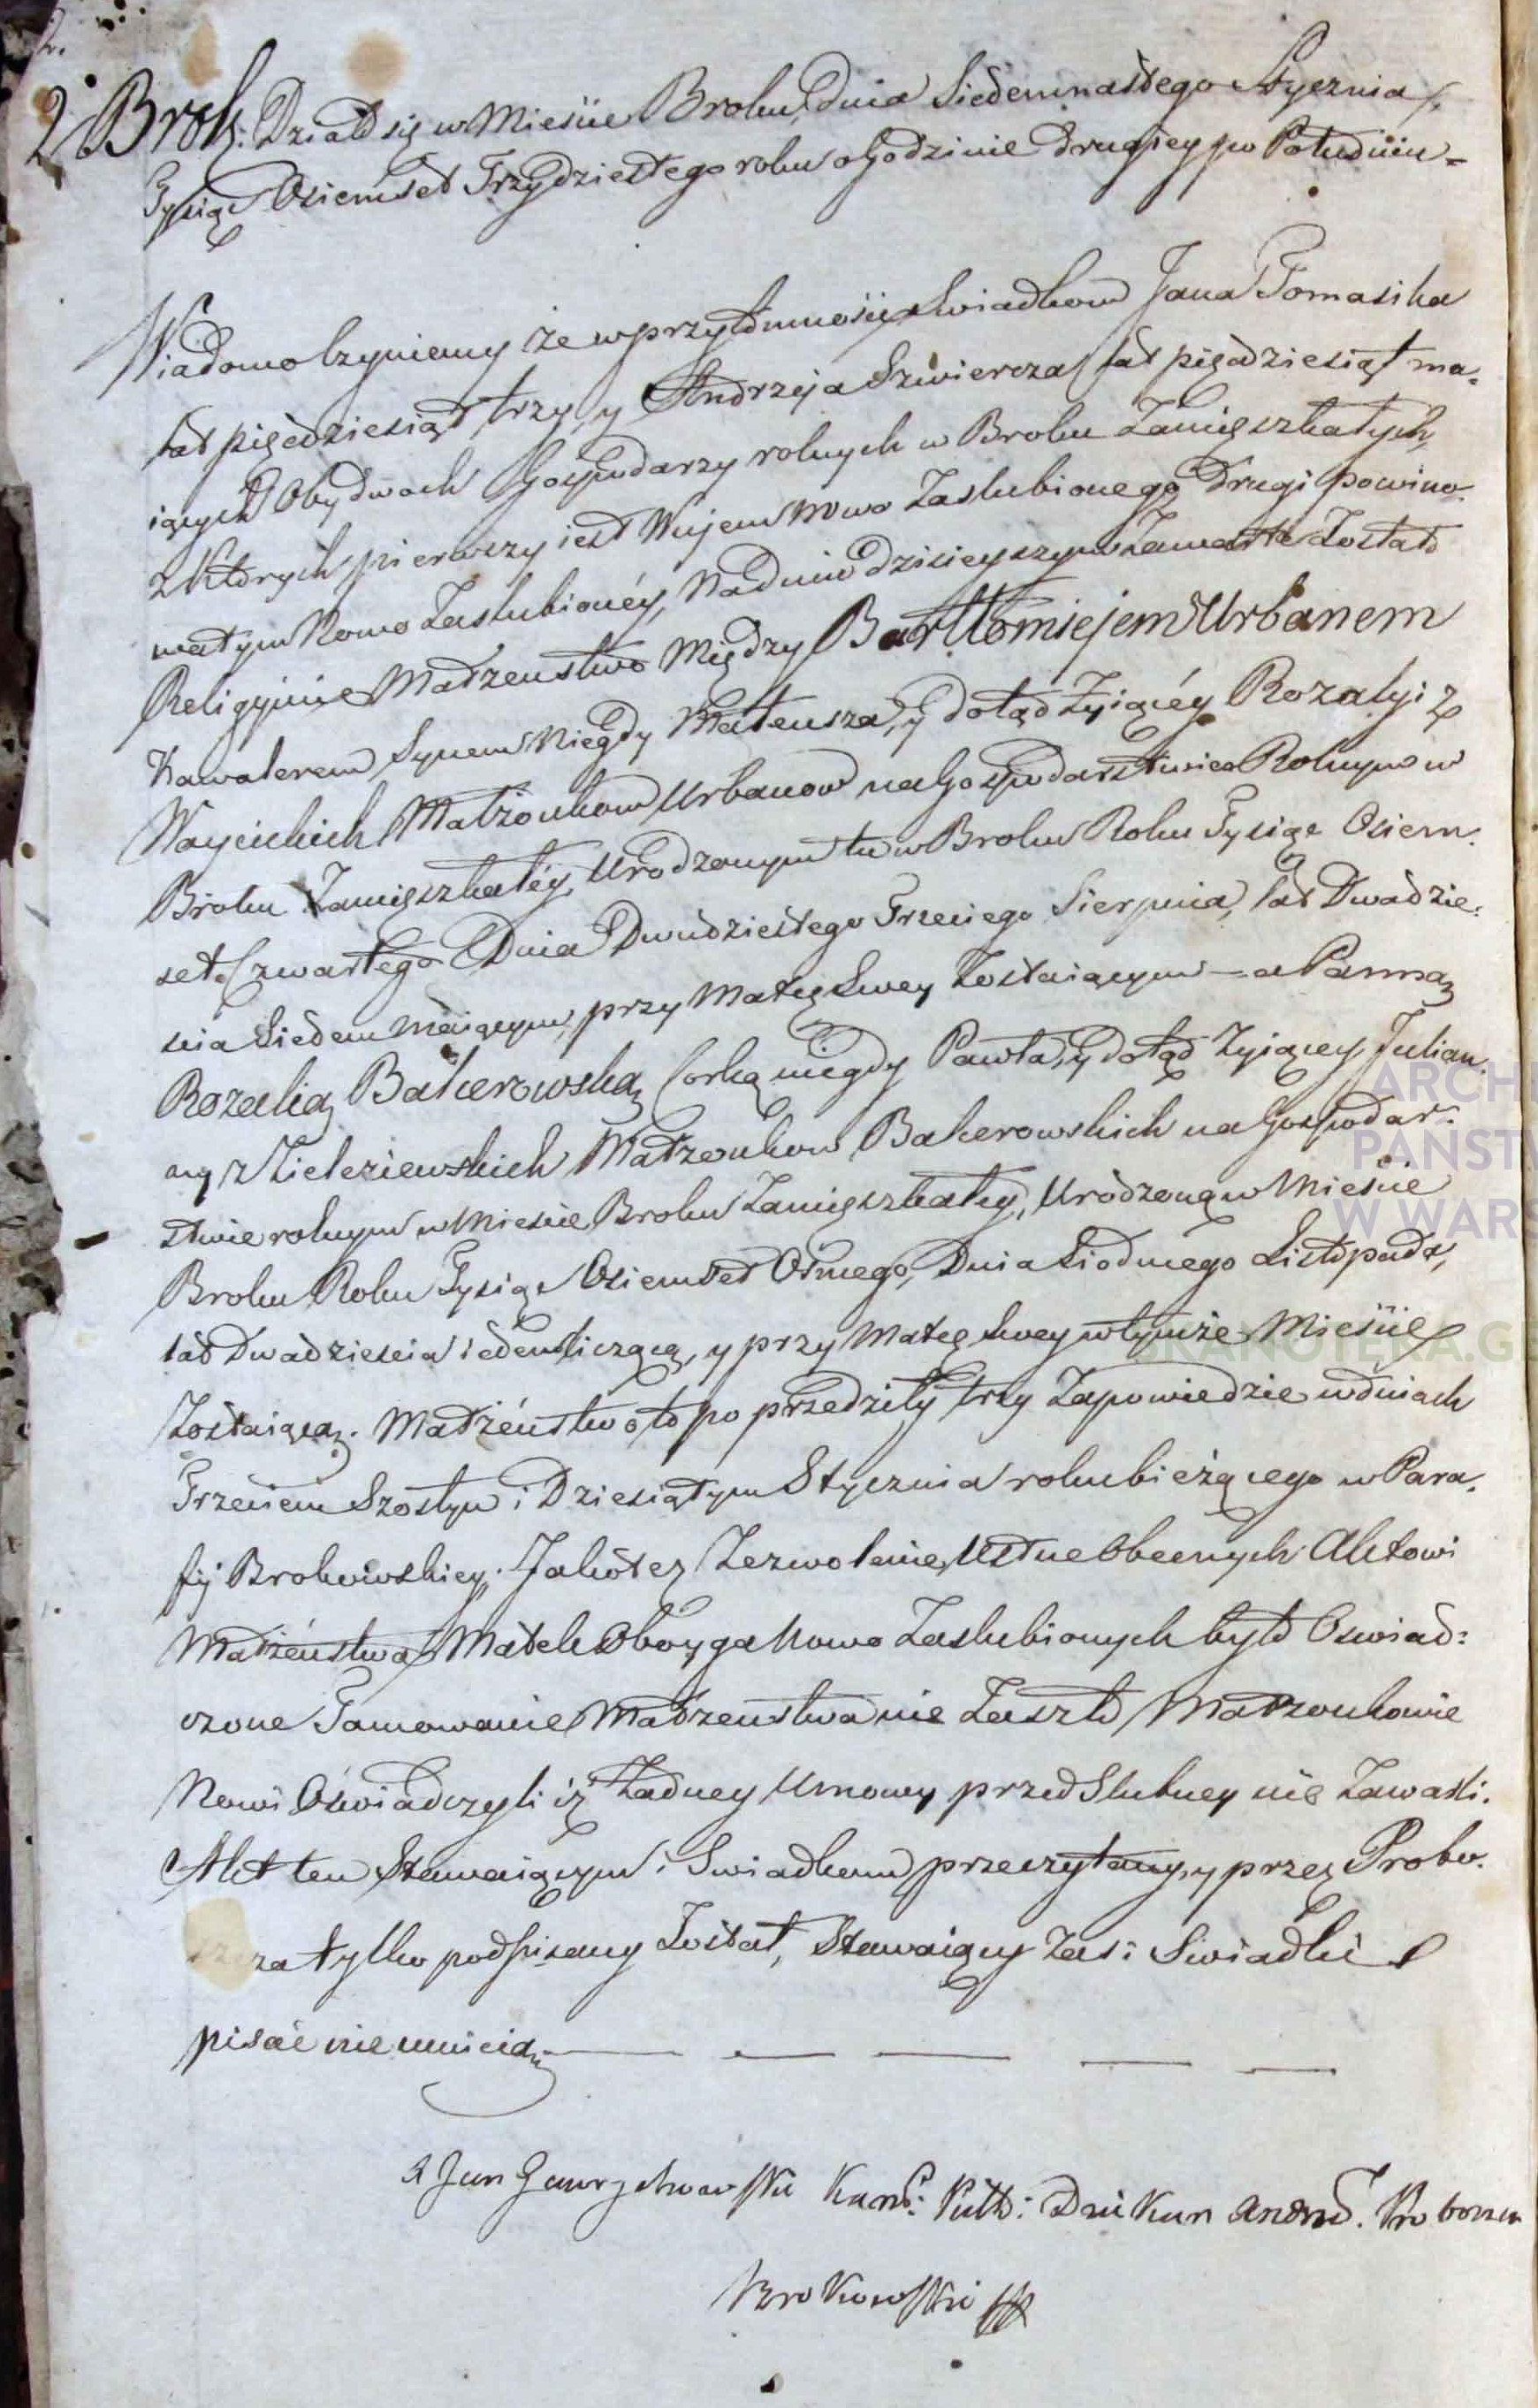 2.
2 Brok. Działo się w Mieście Broku, dnia Siedemnastego Stycznia
Tysiąc Osiemset Trzydziestego roku o Godzinie drugiey po Południu =
Wiadomo Czyniemy że w przytomności Swiadkow Jana Tomasika
lat pięćdziesiąt trzy, y Andrzeja Szwiercza lat pięćdziesiąt ma=
iących Obydwoch Gospodarzy rolnych w Broku Zamięszkałych,
z Których pierwszy iest Wujem Nowo Zaslubionego Drugi powino=
watym Nowo Zaslubionéy, Na dniu dzisieyszym Zawarte Zostało
Religyinie Małżenstwo Między Bartłomiejem Urbanem
Kawalerem Synem Niegdy Mateusza, y dotąd Żyiącéy Rozalyi z
Waycickich Małżonkow Urbanow na Gospodarstwie Rolnym w
Broku Zamięszkałéy, Urodzonym tu w Broku Roku Tysiąc Osiem=
set Czwartego Dnia Dwudziestego Trzeciego Sierpnia, lat Dwadzie=
scia Siedem maiącym, przy Matcę Swey Zostaiącym — a Panną
Rozalią Bakerowską Corką niegdy Pawła, y dotąd Żyiącey Julian=
ny z Zieleziewskich Małżonkow Bakerowskich na Gospodar=
stwie rolnym w Miescie Broku Zamięszkałey, Urodzoną w Mieście
Broku Roku Tysiąc Osiemset Osmego, Dnia Siodmego Listopada,
lat Dwadziescia ieden liczącą, y przy Matcę Swey w tymże Mieście
Zostaiącą. Małżeństwo to poprzedziły trzy Zapowiedzie w dniach
Trzeciem Szostym i Dziesiątym Stycznia roku bieżącego w Para=
fij Brokowskiey. Jakótez Zezwolenie Ustne Obecnych Aktowi
Małżeństwa Matek Oboyga Nowo Zaslubionych było Oswiad=
czone Tamowanie Małżenstwa nie Zaszło Małżonkowie
Nowi Oświadczyli iż Żadney Umowy przed Slubney nie Zawarli.
Akt ten Stawaiącym i Swiadkom przeczytany, y przez Probo=
szcza tylko podpisany Został, Stawaiący Zaś i Swiadki
pisać nie umieią.
X Jan Gawrychowski Kan: Pułt: Dziekan Andrz. Proboszcz
Brokowski
ARCHI
PAŃSTW
W WARS
SKANOTEKA.G